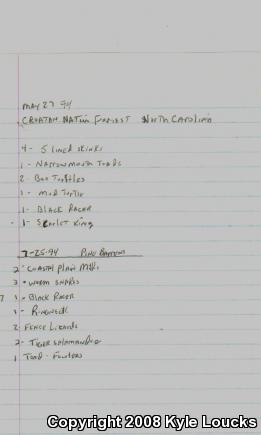 MAY 27 94
CROATAN NATIN FOREST NORTH CAROLINA
4- 5 LINED SKINKS
1- NARROWMOUTH TOADS
2 BOX TURTLES
1- MUD TURTLE
1- BLACK RACER
1- SCARLET KING
7-25-94 PINE BARRENS
2 COASTAL PLAIN MILKS
3 WORM SNAKES
7 1- BLACK RACER
1- RINGNECK
2 FENCE LIZARDS
2- TIGER SALAMANDER
1 TOAD- FOWLERS
Copyright 2008 Kyle Loucks